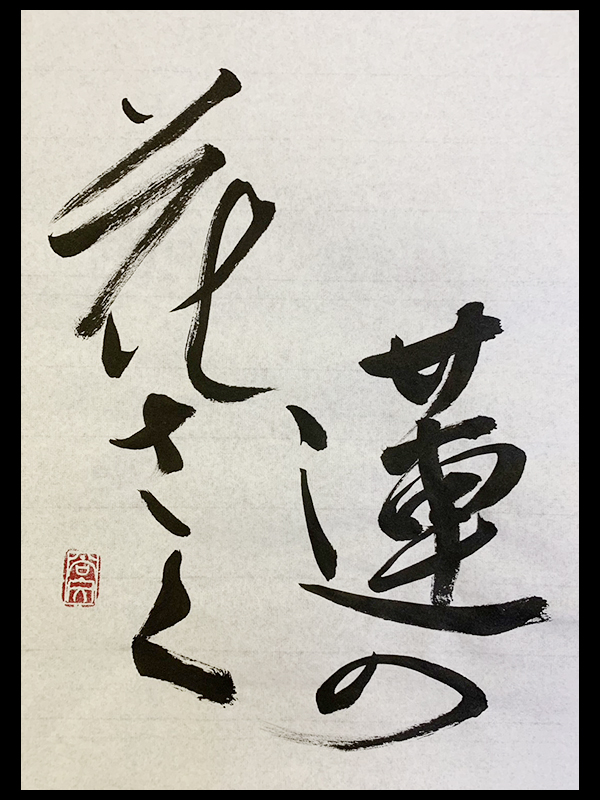 蓮の
花さく